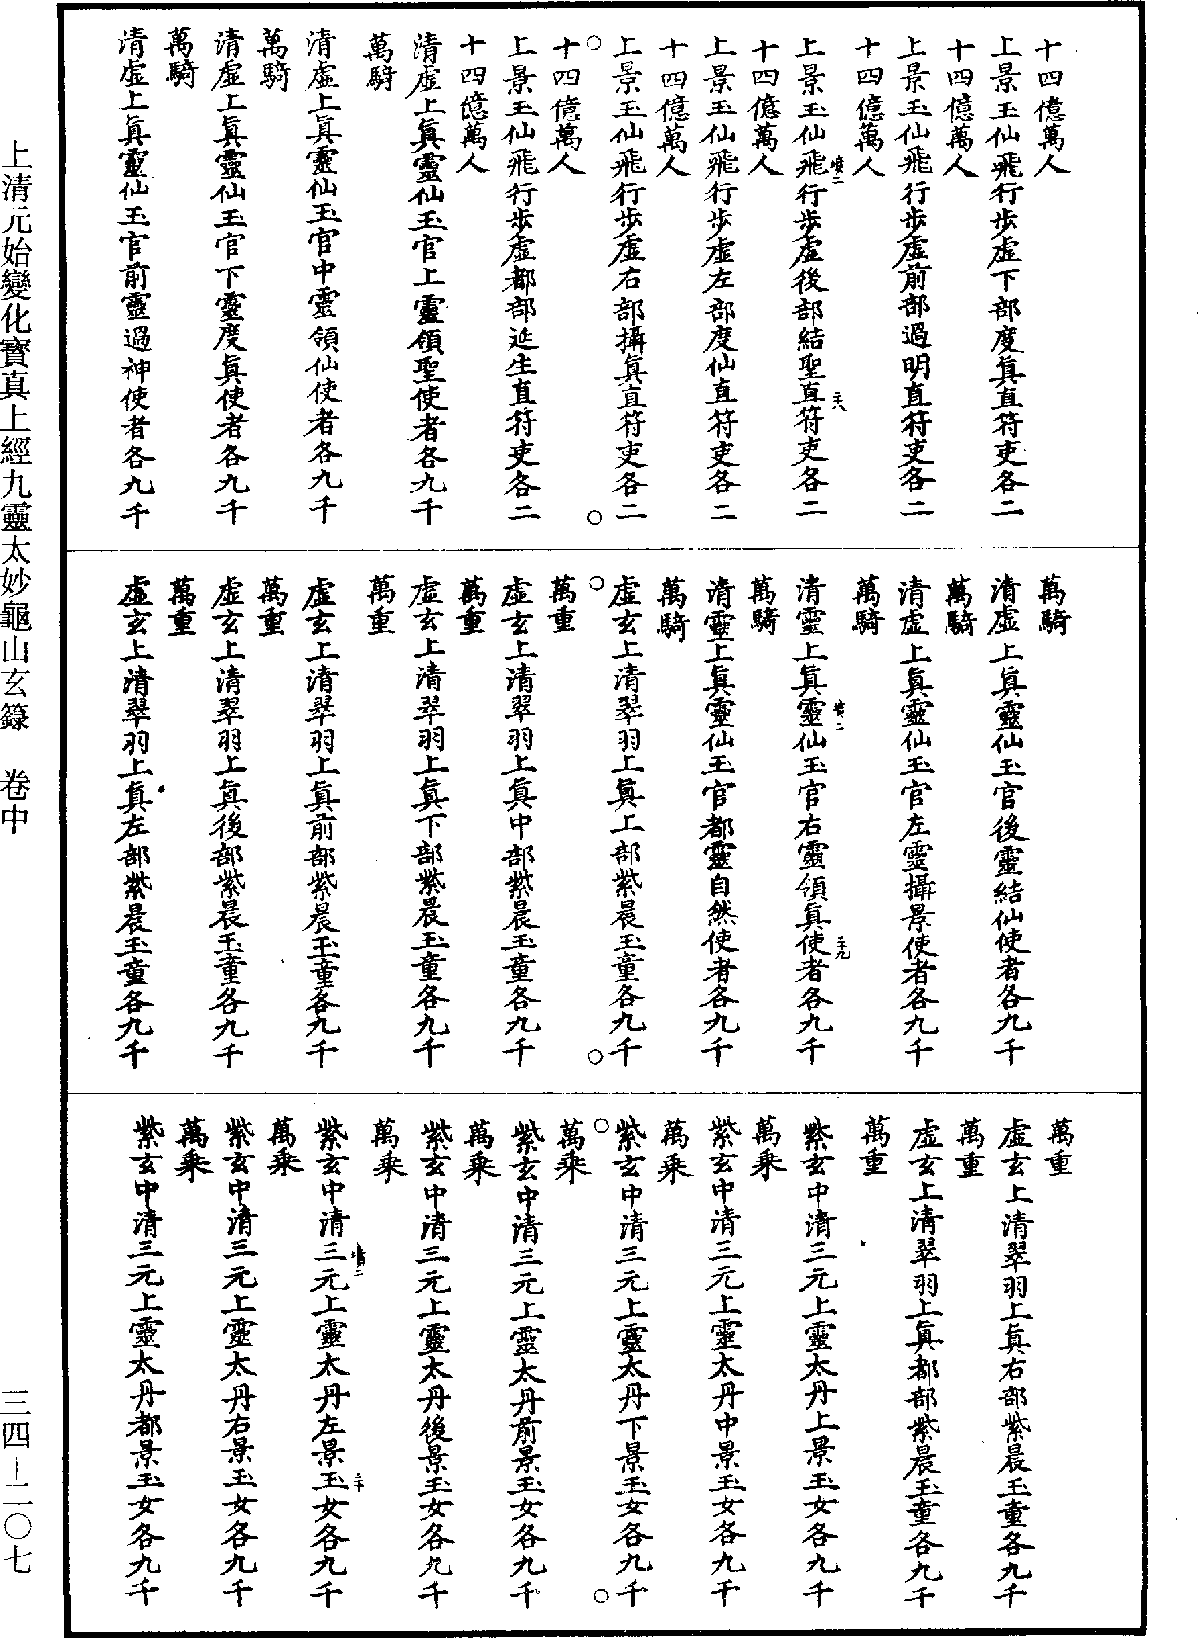 十四億萬人
上景玉仙飛行步虛下部度眞直符吏各二
十四億萬人
上景玉仙飛行步虛前部過明直符吏各二
十四億萬人
上景玉仙飛行步虛後部結聖直符吏各二
十四億萬人
上景玉仙飛行步虛左部度仙直符吏各二
十四億萬人
上景玉仙飛行步虛右部攝眞直符吏各二
十四億萬人
上景玉仙飛行步虛都部延生直符吏各二
十四億萬人
清虛上眞靈仙玉官上靈領聖使者各九千
萬騎
清虛上眞靈仙玉官中靈領仙使者各九千
萬騎
清虛上眞靈仙玉官下靈度眞使者各九千
萬騎
清虛上眞靈仙玉官前靈過神使者各九千
萬騎
清虛上眞靈仙玉官後靈結仙使者各九千
萬騎
清虛上眞靈仙玉官左靈攝景使者各九千
萬騎
清靈上眞靈仙玉官右靈領眞使者各九千
萬騎
清靈上眞靈仙玉官都靈自然使者各九千
萬騎
虛玄上清翠羽上眞上部紫晨玉童各九千
萬重
虛玄上清翠羽上眞中部紫晨玉童各九千
萬重
虛玄上清翠羽上眞下部紫晨玉童各九千
萬重
虛玄上清翠羽上眞前部紫晨玉童各九千
萬重
虛玄上清翠羽上眞後部紫晨玉童各九千
萬重
虛玄上清翠羽上眞左部紫晨玉童各九千
萬重
虛玄上清翠羽上眞右部紫晨玉童各九千
萬重
虛玄上清翠羽上眞都部紫晨玉童各九千
萬重
紫玄中清三元上靈太丹上景玉女各九千
萬乘
紫玄中清三元上靈太丹中景玉女各九千
萬乘
紫玄中清三元上靈太丹下景玉女各九千
萬乘
紫玄中清三元上靈太丹前景玉女各九千
萬乘
紫玄中清三元上靈太丹後景玉女各九千
萬乘
紫玄中清三元上靈太丹左景玉女各九千
萬乘
紫玄中清三元上靈太丹右景玉女各九千
萬乘
紫玄中清三元上靈太丹都景玉女各九千
上清元始變化寶真上經九靈太妙龜山玄籙 卷中
三四－二〇七